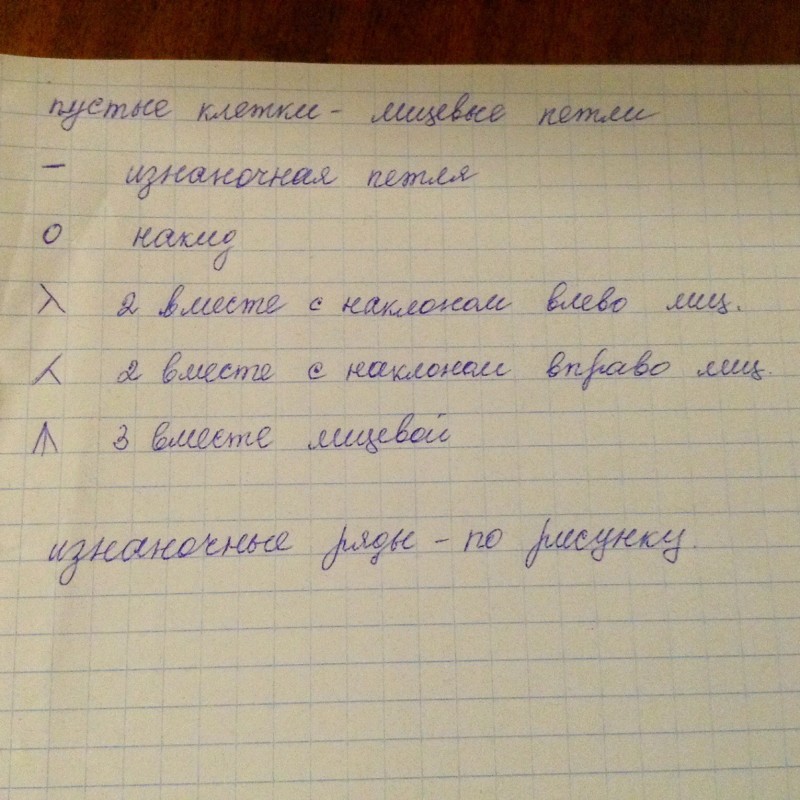 пустые клетки - лицевые петли
– изнаночная петля
О накид
⅄ 2 вместе с наклоном влево лиц.
⅄ 2 вместе с наклоном вправо лиц.
⋔ 3 вместе лицевой
изнаночные ряды - по рисунку.